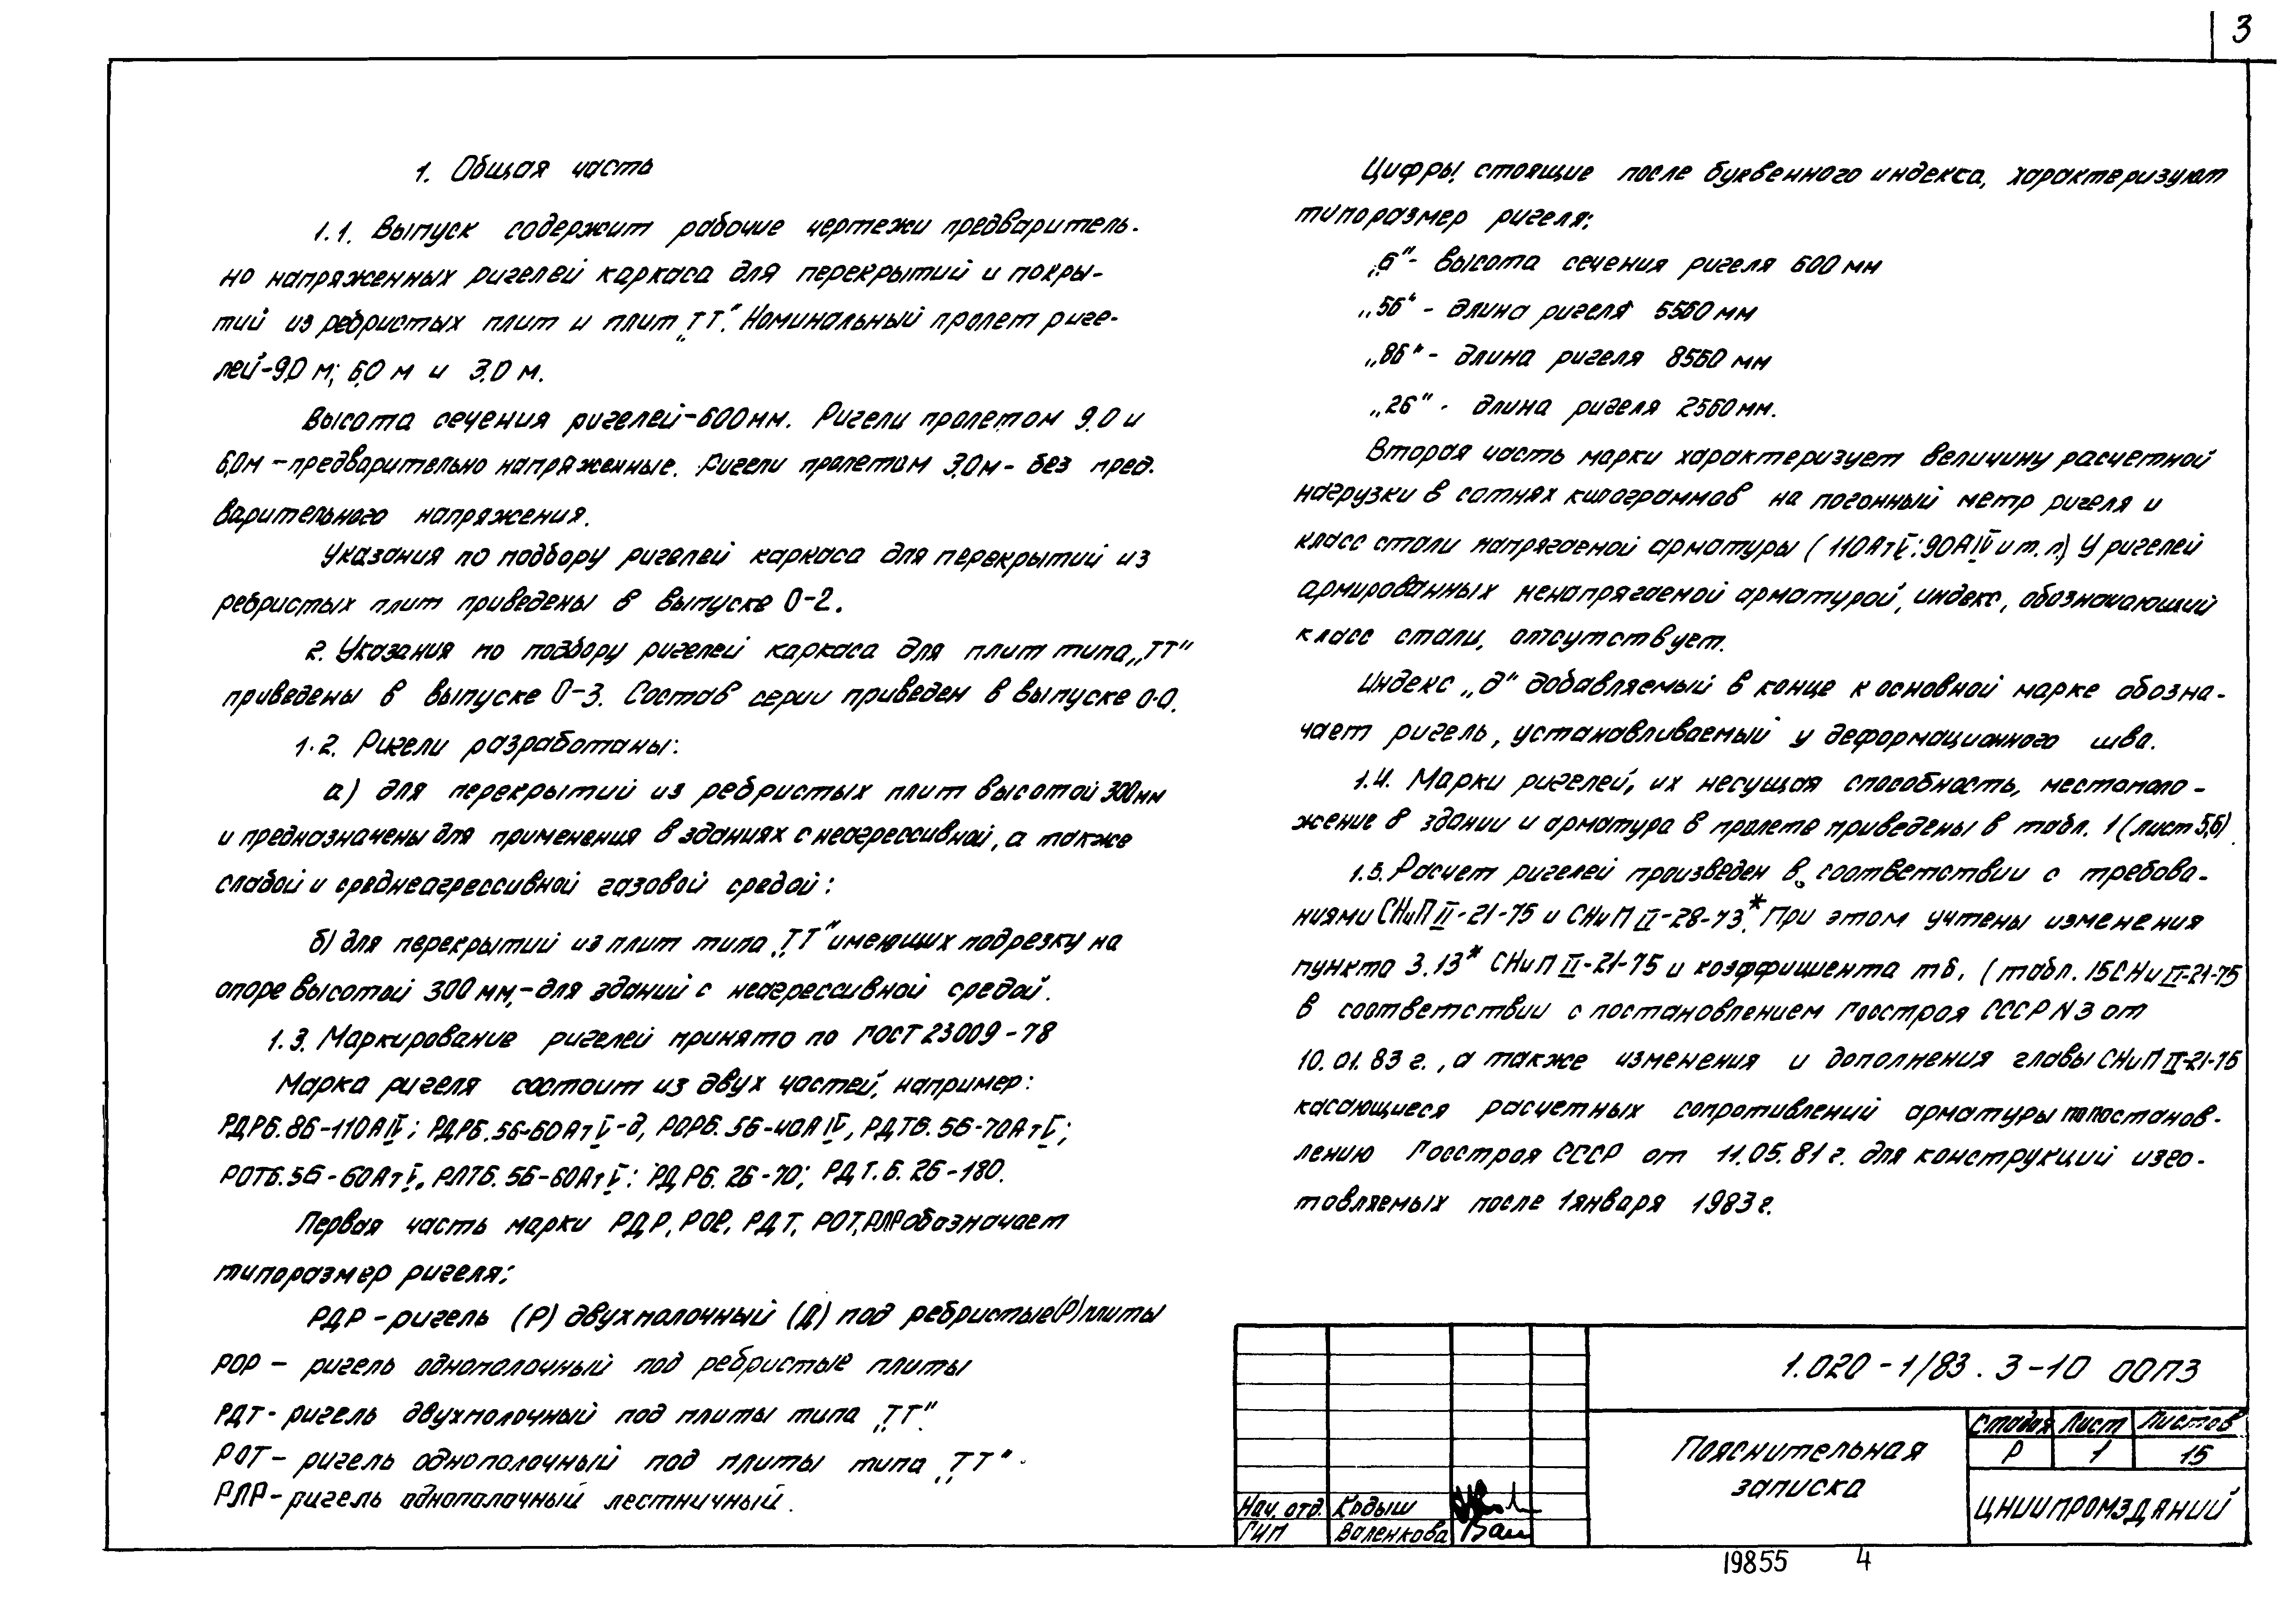 3
1. Общая часть
1.1. Выпуск содержит рабочие чертежи предваритель-
но напряженных ригелей каркаса для перекрытий и покры-
тий из ребристых плит и плит „ТТ". Номинальный пролет риге-
лей-9,0 м; 6,0 м и 3,0 м.
Высота сечения ригелей-600мм. Ригели пролетом 9.0 и
6,0м - предварительно напряженные. Ригели пролетом 3,0м- без пред-
варительного напряжения.
Указания по подбору ригелей каркаса для перекрытий из
ребристых плит приведены в выпуске 0-2.
2. Указания по подбору ригелей каркаса для плит типа „ТТ"
приведены в выпуске 0-3. Состав серии приведен в выпуске 0-0.
1.2. Ригели разработаны:
а) для перекрытий из ребристых плит высотой 300мм
и предназначены для применения в зданиях с неагрессивной, а также
слабой и среднеагрессивной газовой средой:
б) для перекрытий из плит типа „ТТ" имеющих подрезку на
опоре высотой 300 мм,-для зданий с неагрессивной средой.
1.3. Маркирование ригелей принято по ГОСТ 23009-78
Марка ригеля состоит из двух частей, например:
РДР6.86-110АIV; РДР6.56-60АтV-д, РОР6.56-40АIV, РДТ6.56-70АтV;
РОТ6.56-60АтV, РЛТ6.56-60АтV: РДР6.26-70; РДТ.6.26-180.
Первая часть марки РДР, РОР, РДТ, РОТ, РЛР обозначает
типоразмер ригеля:
РДР - ригель (Р) двухполочный (Д) под ребристые(Р)плиты
РОР - ригель однополочный под ребристые плиты
РДТ- ригель двухполочный под плиты типа „ТТ".
РОТ- ригель однополочный под плиты типа „ТТ".
РЛР-ригель однополочный лестничный.
Цифры, стоящие после буквенного индекса, характеризуют
типоразмер ригеля:
„6"- высота сечения ригеля 600 мм
„56" - длина ригеля 5560 мм
„86" - длина ригеля 8560 мм
„26" - длина ригеля 2560мм.
Вторая часть марки характеризует величину расчетной
нагрузки в сотнях килограммов на погонный метр ригеля и
класс стали напрягаемой арматуры (110АтV; 90АIV и т. п.) У ригелей
армированных ненапрягаемой арматурой, индекс, обозначающий
класс стали, отсутствует.
Индекс „д" добавляемый в конце к основной марке обозна-
чает ригель, устанавливаемый у деформационного шва.
1.4. Марки ригелей, их несущая способность, местополо-
жение в здании и арматура в пролете приведены в табл. 1 (лист 5,6).
1.5. Расчет ригелей произведен в соответствии с требова-
ниями СНиП II-21-75 и СНиП II-28-73*. При этом учтены изменения
пункта 3.13* СНиП II-21-75 и коэффициента mб, (табл. 15 СНи II-21-75
в соответствии с постановлением Госстроя СССР N 3 от
10.01.83 г., а также изменения и дополнения главы СНиП II-21-75
касающиеся расчетных сопротивлений арматуры по постанов-
лению Госстроя СССР от 11.05.81 г. для конструкций изго-
товляемых после 1 января 1983 г.
1.020-1/83.3-10 00ПЗ
Пояснительная
записка
Стадия Лист Листов
Р 1 15
ЦНИИПРОМЗДАНИЙ
Нач. отд. Кодыш
ГИП Валенкова
19855 4